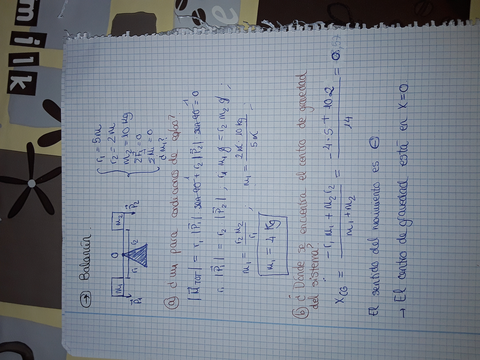 milk
→ Balancín
m₁
m₂
0
r₁
r₂
P₁
P₂
r₁ = 5m
r₂ = 2m
m₂ = 10 kg
ΣF = 0
ΣM = 0
¿m₁?
a) ¿m₁ para condiciones de eqbo?
|M_TOT| = r₁ |P₁| sen 90° + r₂ |P₂| sen 90° = 0
r₁ |P₁| = r₂ |P₂| , r₁ m₁ g = r₂ m₂ g
m₁ = r₂ m₂ / r₁ , m₁ = 2m 10 kg / 5m
m₁ = 4 kg
b) ¿Dónde se encuentra el centro de gravedad
del sistema?
X_CG = -r₁ m₁ + m₂ r₂ / m₁ + m₂ = -4·5 + 10·2 / 14 = 0
El sentido del movimiento es ⊖
→ El centro de gravedad está en x = 0